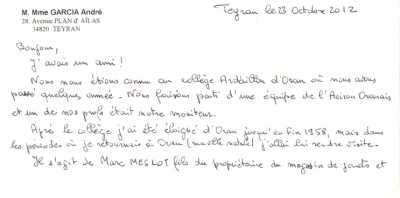 M. Mme GARCIA André
28. Avenue PLAN d' AÏLAS
34820 TEYRAN
Teyran le 23 Octobre 2012
Bonjour,
J'avais un ami !
Nous nous étions connu au collège Ardaillon d'Oran où nous avons
passé quelques année. Nous faisions parti d'une équipe de l'Aviron Oranais
et un de nos profs était notre moniteur.
Après le collège j'ai été éloigné d'Oran jusqu'en fin 1958, mais dans
les périodes où je retournais à Oran (ma ville natale) j'allais lui rendre visite.
Il s'agit de Marc MESLOT fils du propriétaire du magasin de jouets et